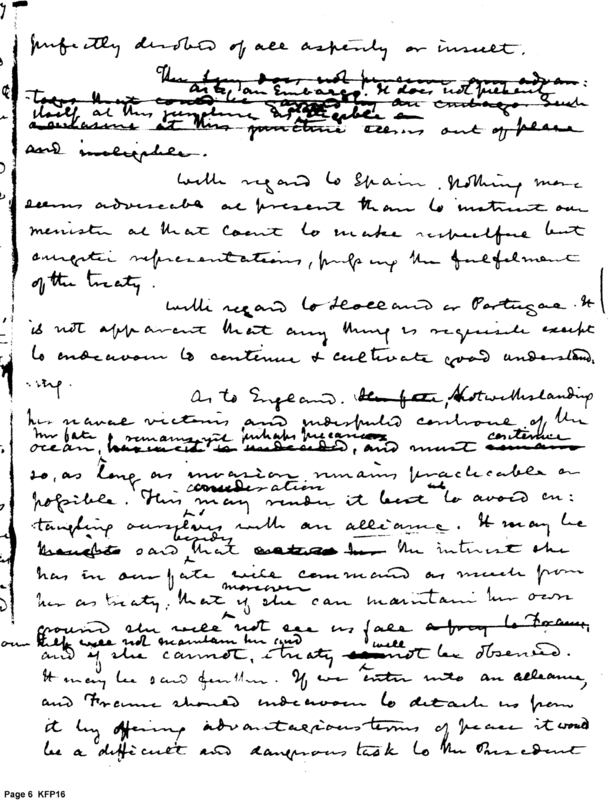 perfectly devoid of all asperity or insult.
This Gen. does not perceive any advan:
As to an Embargo. It does not present
tages that could be gained by an embargo. Such
itself at this juncture as eligible
a measure at this juncture seems out of place
and ineligible.
With regard to Spain. Nothing more
seems adviseable at present than to instruct our
minister at that Court to make respectful but
energetic representations, pressing the fulfilment
of the treaty.
With regard to Holland or Portugal. It
is not apparent that any thing is requisite except
to endeavour to continue & cultivate good understand
:ing.
As to England. Her fate, Notwithstanding
her naval victories and undisputed controul of the
her fate remains yet perhaps precarious
ocean, and must continue
so, as long as invasion remains practicable or
possible. This consideration may render it best to avoid en:
tangling ourselves with an alliance. It may be
thought said besides that the interest she
has in our fate will command as much from
her as treaty, that moreover if she can maintain her own
ground she will not see us fall a prey to France,
our help will not maintain her and
and if she cannot, a treaty will not be observed.
It may be said further. If we enter into an alliance,
and France should endeavour to detach us from
it by offering advantagious terms of peace it would
be a difficult and dangerous task to the President
Page 6 KFP16